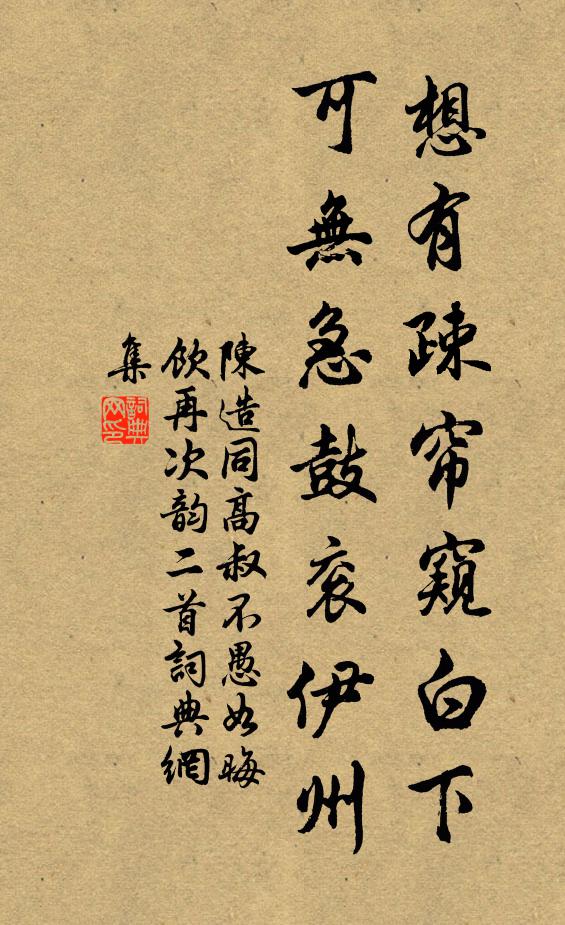 想有疎帘窺白下
可無急鼓衮伊州
陳造同高叔不愚如晦
飲再次韵二首詞典網
集
詞典
网印